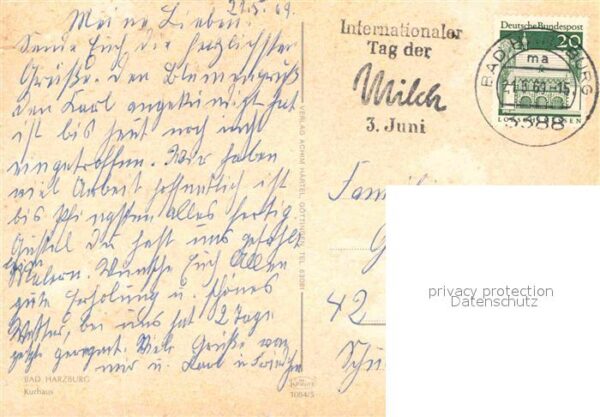 21.5.69.
Meine Lieben!
Sende Euch die herzlichsten
Grüße. den Blumengruß
den Karl angekündigt hat
ist bis heut noch nicht
eingetroffen. Wir haben
viel Arbeit hoffentlich ist
bis Pfingsten alles fertig.
Gustel du hast uns gefehlt
Malern. Wünsche Euch Allen
gute Erholung u. schönes
Wetter, bei uns hat 2 Tage
geregnet. Viele Grüße von
mir u. Karl u
BAD HARZBURG
Kurhaus
VERLAG ACHIM HARTEL, GÖTTINGEN, TEL. 63081
1084/5
Internationaler
Tag der
Milch
3. Juni
Deutsche Bundespost
20
BAD HARZBURG
ma
21.5.69.-15
3388
Famili
42
Schü
privacy protection
Datenschutz